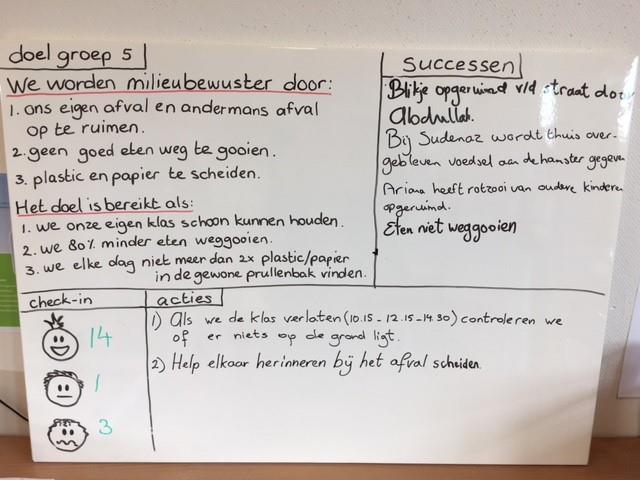 doel groep 5
We worden milieubewuster door:
1. ons eigen afval en andermans afval
op te ruimen.
2. geen goed eten weg te gooien.
3. plastic en papier te scheiden.
Het doel is bereikt als:
1. we onze eigen klas schoon kunnen houden.
2. we 80% minder eten weggooien.
3. we elke dag niet meer dan 2x plastic/papier
in de gewone prullenbak vinden.
Successen
Blikje opgeruimd v/d straat door
Abdullah.
Bij Sudenaz wordt thuis over-
gebleven voedsel aan de hamster gegeven
Ariana heeft rotzooi van oudere kinderen
opgeruimd.
Eten niet weggooien
check-in
14
1
3
acties
1) Als we de klas verlaten (10.15 - 12.15 - 14.30) controleren we
of er niets op de grond ligt.
2) Help elkaar herinneren bij het afval scheiden.